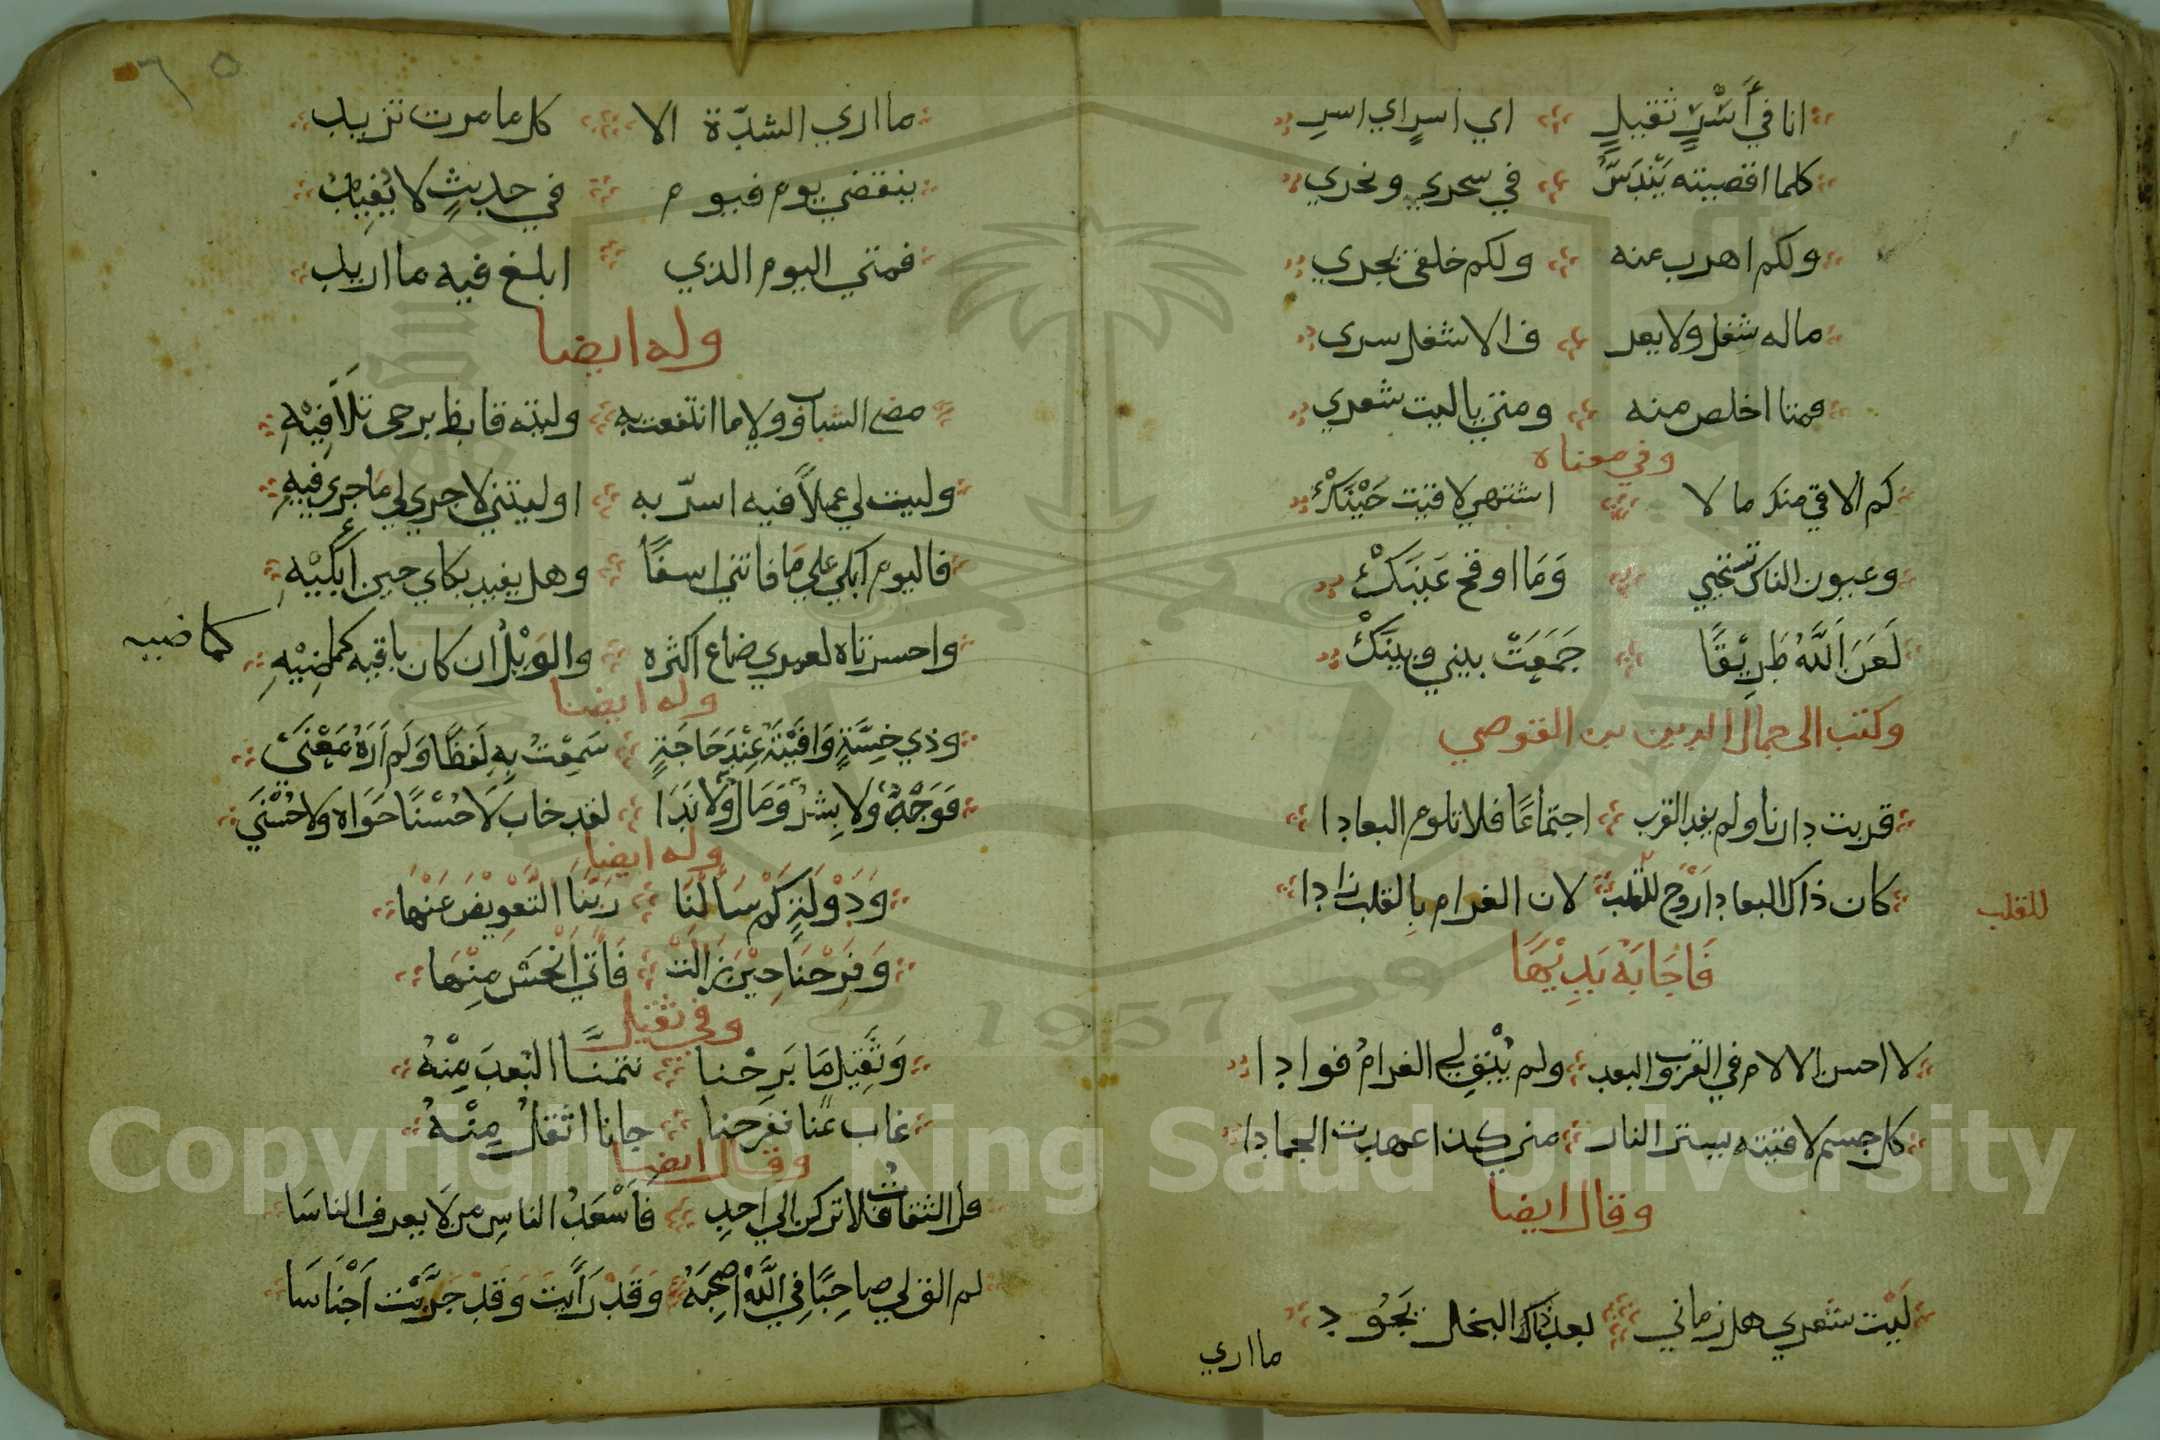 انا في أَسْرِ ثقيلٍ اي اسرٍ اي اسرِ
كلما اقصيته يَنْدَسُّ في سحري ونحري
ولكم اهرب عنه ولكم خلفي يجري
ماله شغل ولا يعر ف الا شغل سرى
فمتا اخلص منه ومتى ياليت شعري
وفي معناه
كم الاقي منك ما لا اشتهي لاقيت حَيْنَكْ
وعيون الناس تستحيي وَمَا اوقح عَيْنَكْ
لَعَنَ اَللَّهُ طَرِيْقًا جَمَعَتْ بيني وبينَكْ
وكتب الى جمال الدين بن القوصي
قربت دارنا ولم يفد القرب اجتماعًا فلا تلوم البعادا
كان ذاك البعاد اَرْوَح للقلب لان الغرام بالقلب زادا
للقلب
فَاجَابَهُ بَدِيْهًا
لا احسن الالام في القرب والبعد ولم يُبْقِ لي الغرامُ فوادا
كل جسم لاقيته يستر النار متى كنت اعهدت الجمادا
وقال ايضا
لَيْت شعري هل زماني بعد ذاك البخل يَجُود
ما ارى
٦٥
ما ارى الشدّة الا كل ما مرت تزيد
ينقضي يوم فيوم في حديثٍ لا يُفِيدُ
فمتي اليوم الذي ابلغ فيه ما اريد
وله ايضا
مضى الشباب وولا ما انتفعت به وليته فارط يرجى تَلاَفِيْهِ
وليت لي عملاً فيه اسرّ به اوليتني لا جرى لي مَا جرى فيهِ
فاليوم ابكي علي مَا فاتني اسفًا وهل يفيد بكاي حين أَبْكِيْهِ
واحسرتاه لعمري ضاع اكثره والوَيْلُ ان كان باقيه كماضِيْهِ
كماضيه
وله ايضا
وذي خِسَّةٍ وَافَيْتَهُ عِنْدَ حَاجَةٍ سَمِعْتُ بِهِ لَفظًا وَلَم اَرَهُ مَعْنَى
فَوَجْهٌ وَلا بِشْرٌ وَمَالٌ وَلا نَدَا لقد خاب لاَ حُسْنًا حَوَاه ولا حُسْنَى
وله ايضا
وَدَوْلَةٍ كَمْ سَاَلْنَا رَبَّنَا التَّعْوِيْضَ عَنْهَا
وَفَرِحْنَا حِيْنَ زَالَتْ فَأَتَى اَنْحَسُ مِنْهَا
وفي ثقيل
وَثَقِيْلٍ مَا بَرِحْنا نتمنَّا البُعدَ مِنْهُ
غاب عَنا ففرحنا جانا اثقلُ مِنْهُ
وقال ايضا
قل الثقاتُ فلا تركن الي احدِ فَأَسْعَدُ الناسِ من لاَ يعرف الناسَا
لم الق لي صاحبًا فِي اللَّهْ اصحبَهُ وَقَدْ رَاَيتَ وَقَدْ جَرَّبْت اَجْنَاسَا
Copyright © King Saud University
1957